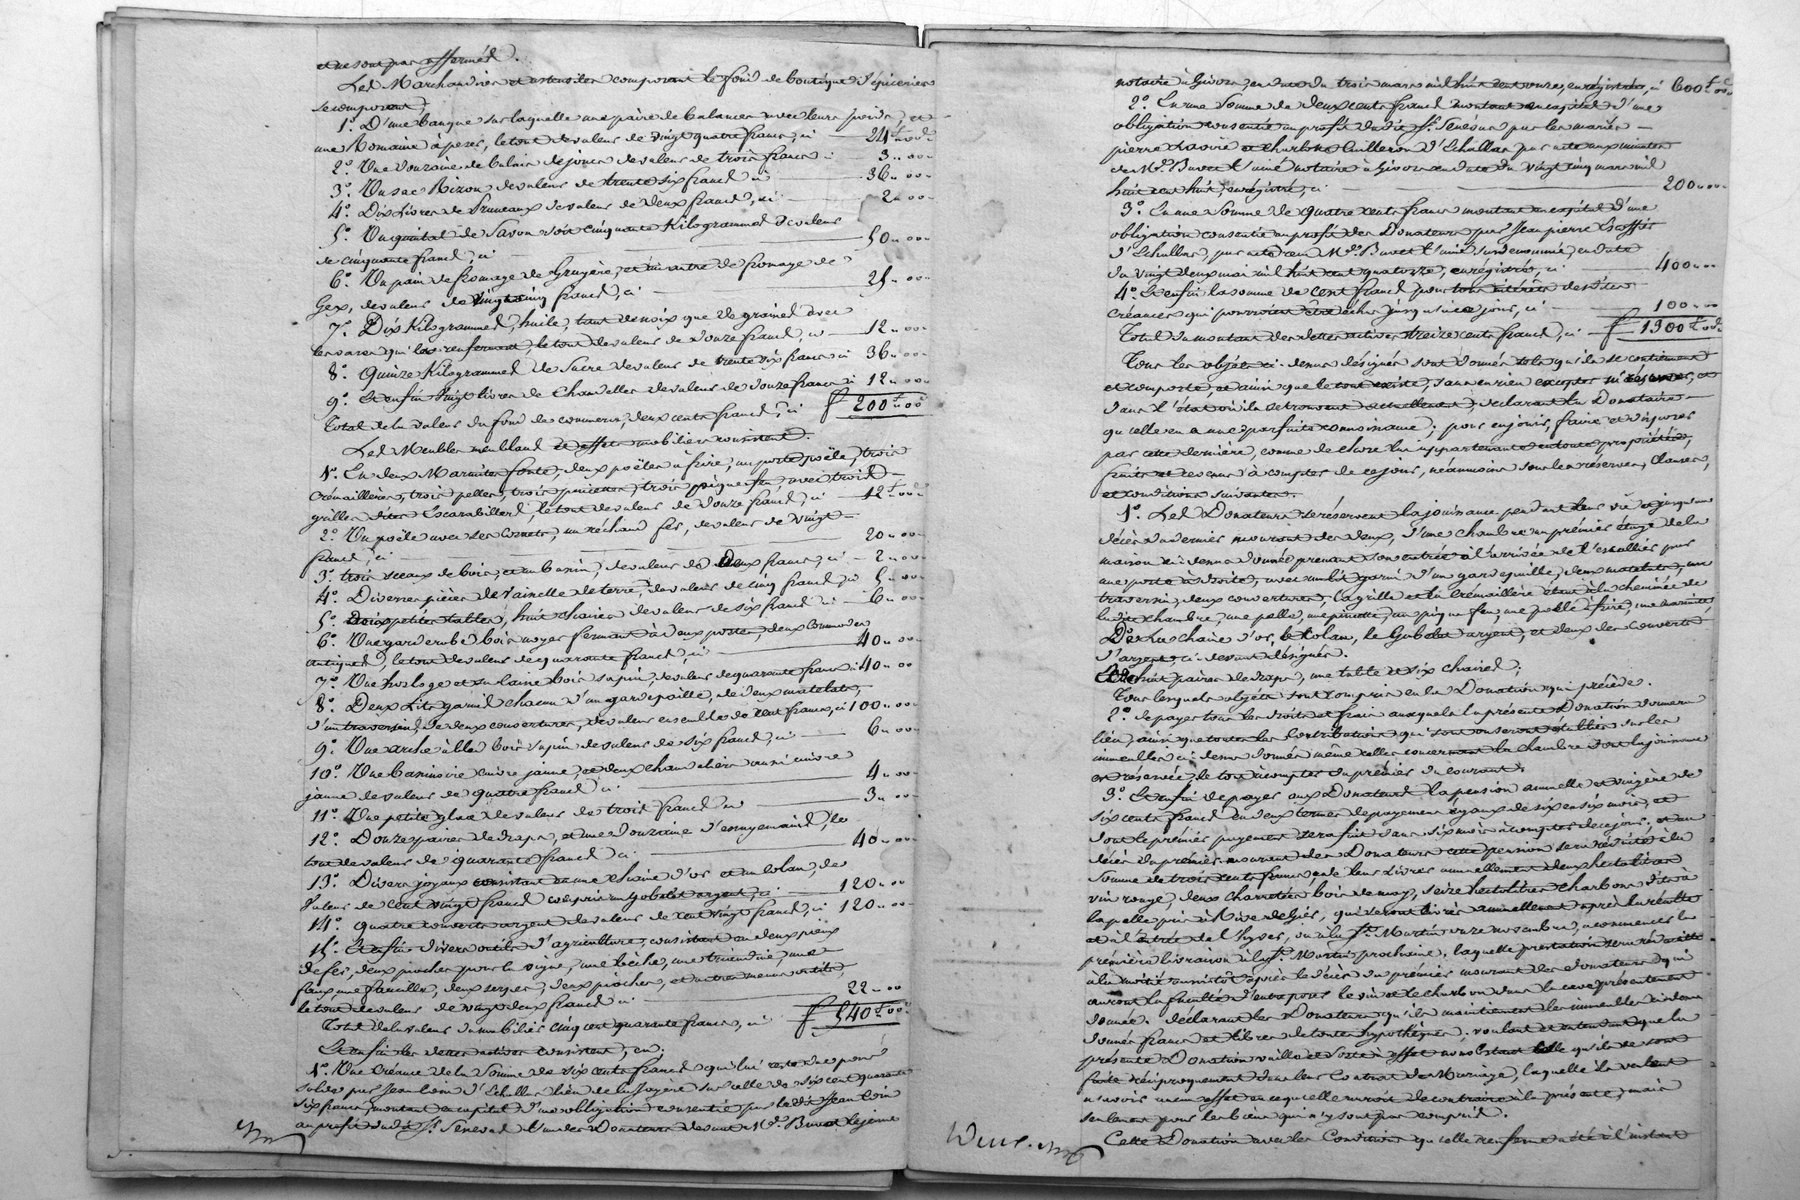 et ne sont pas affermés.
Les Marchandises et ustensiles composant le fond de boutique d'épicerie
se composent,
1.° D'une banque sur laquelle une paire de balances avec leurs poids, et
une Romaine à peser, le tout de valeur de vingt quatre francs, ci 24 f. 00 c.
2.° Une Douzaine de balais de jonc de valeur de trois francs ci 3 .. 00
3.° Un sac Rizon de valeur de trente six francs ci 36 .. 00
4.° Dix Livres de Pruneaux de valeur de Deux francs, ci 2 .. 00
5.° Un quintal de Savon soit cinquante Kilogrammes de valeur
de cinquante francs, ci 50 .. 00
6.° Un pain de fromage de Gruyère, et un autre de fromage de
Gex, de valeur de vingt cinq francs, ci 25 .. 00
7.° Dix Kilogrammes, huile, tant de noix que de graines avec
les vases qui les renferment, le tout de valeur de Douze francs, ci 12 .. 00
8.° Quinze Kilogrammes de Sucre de valeur de trente six francs ci 36 .. 00
9.° Et enfin vingt livres de Chandelles de valeur de Douze francs ci 12 .. 00
Total de la valeur du fond de commerce, deux cents francs, ci f 200 f. 00 c
Les Meubles meublans et effets mobiliers consistent.
1.° En deux Marmites fonte, deux poëles à frire, un porte poële, trois
Cremaillères, trois pelles, trois pincettes, trois pique feu, avec trois
grilles dites Escarabilles, le tout de valeur de Douze francs, ci 12 f. 00
2.° Un poële avec ses Cornets, un réchaud fer, de valeur de vingt
francs, ci 20 .. 00
3.° trois seaux de bois, et un bassin, de valeur de Deux francs, ci 2 .. 00
4.° Diverses pièces de Vaisselle de terre, de valeur de cinq francs, ci 5 .. 00
5.° Deux petites tables, huit chaises de valeur de six francs ci 6 .. 00
6.° Une garderobe bois noyer fermant à Deux portes, deux Commodes
antiques, le tout de valeur de quarante francs, ci 40 .. 00
7.° Une horloge et sa caisse bois sapin, de valeur de quarante francs ci 40 .. 00
8.° Deux Lits garnis chacun d'un gardepaille, de deux matelats,
d'un traversin, de deux couvertures, de valeur ensemble de cent francs, ci 100 .. 00
9.° Une arche à blé bois sapin de valeur de six francs, ci 6 .. 00
10.° Une bassinoire cuivre jaune, et deux chandeliers aussi cuivre
jaune de valeur de quatre francs ci 4 .. 00
11.° Une petite glace de valeur de trois francs ci 3 .. 00
12.° Douze paires de draps, et une Douzaine d'essuyemains, le
tout de valeur de quarante francs ci 40 .. 00
13.° Divers joyaux consistant en une Chaine d'or et un Colan, de
Valeur de Cent vingt francs compris un gobelet argent, ci 120 .. 00
14.° quatre couverts argent de valeur de cent vingt francs, ci 120 .. 00
15.° Et enfin divers outils d'agriculture, consistant en deux pieux
de fer, deux pioches pour la vigne, une bèche, une triandine, une
faux une faucille, deux serpes, deux pioches, et autres menus outils,
le tout de valeur de vingt deux francs ci 22 .. 00
Total de la valeur du mobilier cinq cent quarante francs, ci f 540 f. 00 c
Et enfin les dettes actives consistent, en.
1.° Une Créance de la Somme de six cents francs qui lui reste due pour
solde par Jean Coin d'Echallas lieu de la Joyère sur celle de six cent quarante
six francs, montant en capital d'une obligation consentie par le dit Jean Coin
au profit du dit S.r Seneval l'un des Donateurs devant M.e Buvet le jeune
notaire à Givors, en date du trois mars mil huit cent onze, enrégistrée, ci 600 f. 00 c
2.° En une Somme de deux cents francs montant en capital d'une
obligation consentie au profit du dit S.r Seneval par les mariés
pierre Lavoie et charlotte Cuilleron d'Echallas par acte aux minutes
de M.e Buvet l'ainé notaire à Givors en date du vingt cinq mars mil
huit cent huit, enrégistré, ci 200 .. 00
3.° En une Somme de quatre cents francs montant en capital d'une
obligation consentie au profit des Donateurs par Jean pierre Escoffier
d'Echallas, par acte reçu M.e Buvet l'ainé susdénommé, en date
du vingt deux mai mil huit cent quatorze, enrégistrée, ci 400 .. 00
4.° Et enfin la somme de cent francs pour tous intérêts des dites
créances qui pourroient être échus jusqu'à ce jour, ci 100 .. 00
Total du montant des dettes actives treize cents francs, ci f 1300 f. 00 c
Tous les objets ci-dessus désignés sont donnés tels qu'ils se contiennent
et comportent, et ainsi que le tout existe, sans en rien excepter ni réserver, et
dans l'état où ils se trouvent actuellement, déclarant la Donataire
qu'elle en a une parfaite connoissance; pour en jouir, faire et disposer
par cette dernière, comme de chose lui appartenante en toute propriété,
fruits et revenus à compter de ce jour, néanmoins sous les réserves, clauses,
et conditions suivantes.
1.° Les Donateurs se réservent la jouissance pendant leur vie et jusqu'au
décès du dernier mourant des deux, d'une chambre au premier étage de la
maison ci-dessus donnée prenant son entrée à l'arrivée de l'escallier par
une porte à droite, avec un lit garni d'un gardepaille, deux matelats, un
traversin, deux couvertures, la grille et la Cremaillère étant à la cheminée de
la dite chambre, une pelle, une pincette, un pique feu, une poële à frire, une marmite,
De la Chaine d'or, le Colan, le Gobelet argent, et deux des couverts
d'argent, ci-devant désignés.
huit paires de draps, une table et six chaises;
Tous lesquels objets sont compris en la Donation qui précède.
2.° de payer tous les droits et frais auxquels la présente Donation donnera
lieu, ainsi que toutes les Contributions qui sont ou seront établies sur les
immeubles ci-dessus donnés même celles concernant la chambre dont la jouissance
est réservée, le tout à compter du premier du courant.
3.° Et enfin de payer aux Donateurs la pension annuelle et viagère de
six cents francs en deux termes de payement égaux de six en six mois, et
dont le premier payement sera fait dans six mois à compter de ce jour, et au
décès du premier mourant des Donateurs cette pension sera réduite à la
Somme de trois cents francs, et de leur livrer annuellement deux hectolitres
vin rouge, deux charretées bois de moz, seize hectolitres charbons dit à
la pelle pris à Rive de Gier, qui seront livrés annuellement après la récolte
et à l'entrée de l'hyver, ou à la S.t Martin onze novembre, à commencer la
première livraison à la S.t Martin prochaine, laquelle prestation sera réduite
à la moitié aussitôt après le décès du premier mourant des donateurs, qui
auront la faculté d'entreposer le vin et le charbon dans la cave présentement
donnée. déclarant les Donateurs qu'ils maintiennent les immeubles ci-dessus
donnés francs et libres de toute hypothèque; voulant et entendant que la
présente Donation vaille et sorte à effet nonobstant celle qu'ils se sont
faite réciproquement dans leur Contrat de Mariage, laquelle ils veulent
n'avoir aucun effet en ce qu'elle auroit de contraire à la présente, mais
seulement pour les biens qui n'y sont pas compris.
Cette Donation avec les Conditions qu'elle renferme a été à l'instant